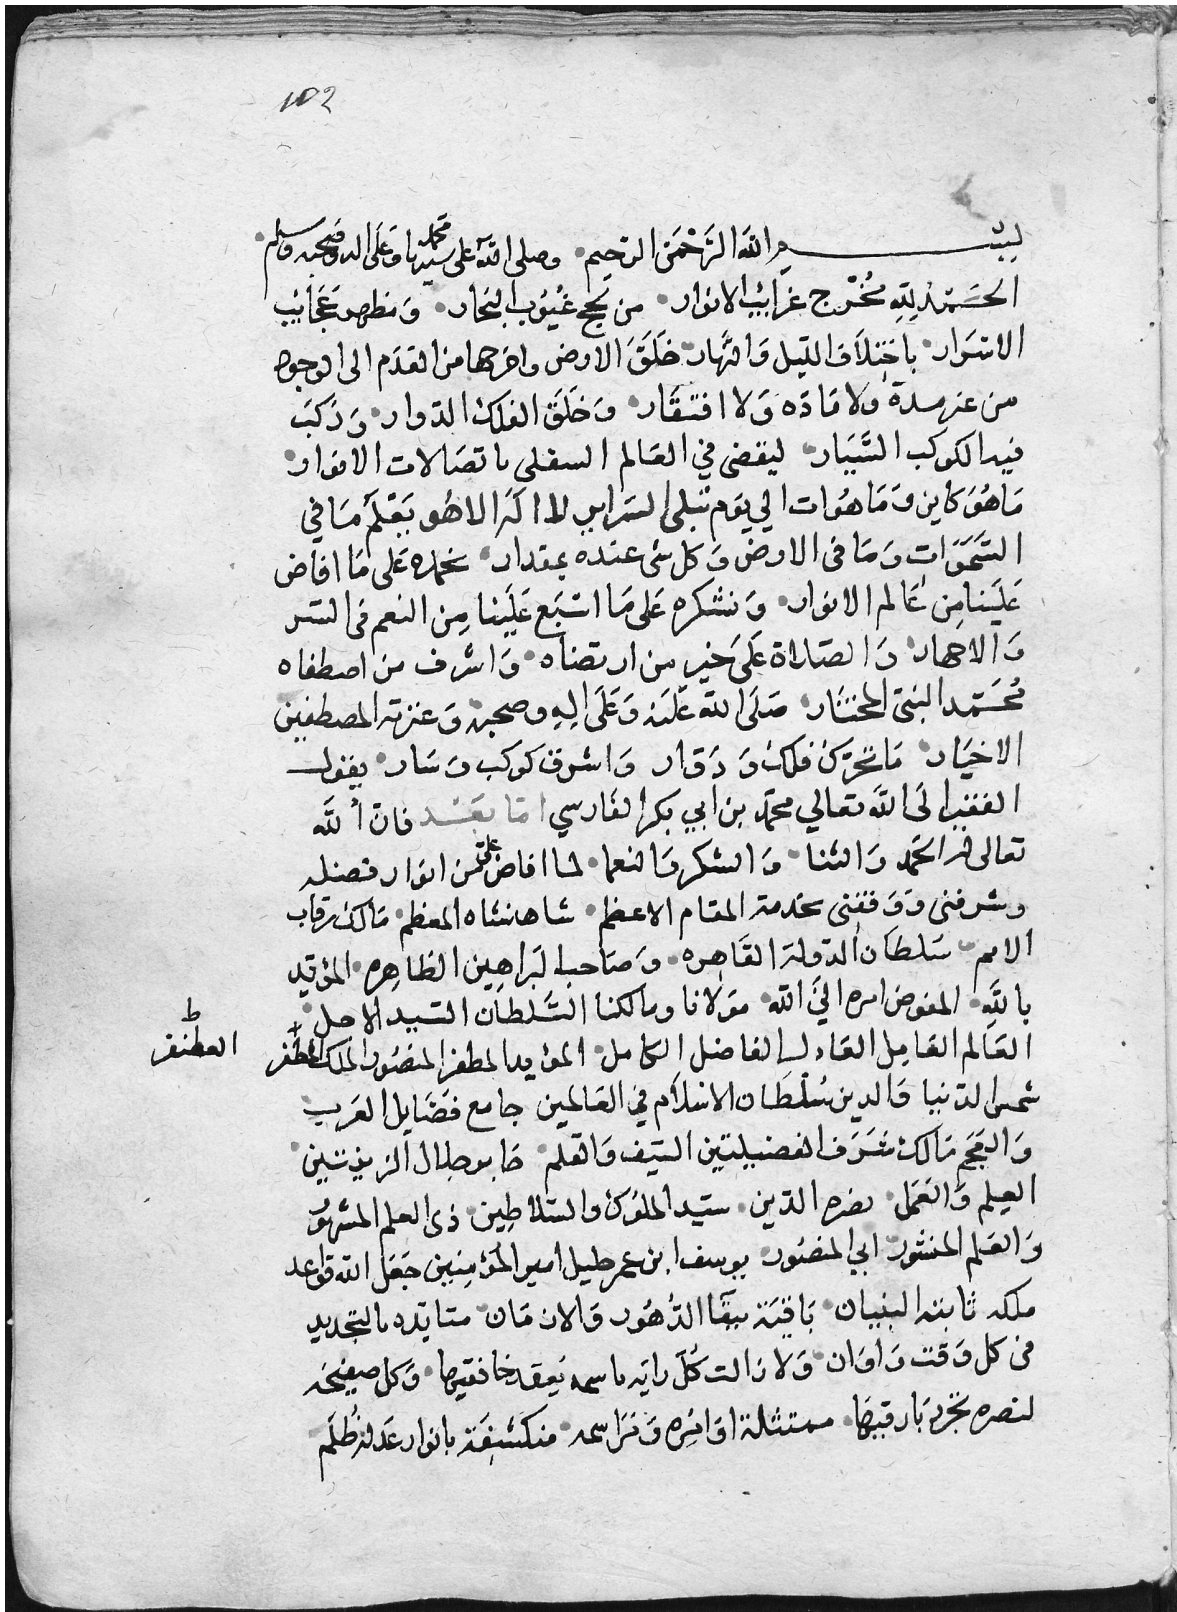 102
بسم الله الرحمن الرحيم وصلى الله على سيدنا محمد وعلى اله وصحبه وسلم
الحمد لله مخرج غرائب الانوار من لجج غيوب البحار ومظهر عجائب
الاسرار باختلاف الليل والنهار خلق الارض واخرجها من العدم الى الوجود
من غير مدة ولا مادة ولا افتقار وخلق الفلك الدوار وركب
فيه الكوكب السيار ليقضى في العالم السفلى باتصالات الانوار
ما هو كاين وما هوات الي يوم تبلى السراير لا اله الا هو يعلم ما في
السموات وما في الارض وكل شى عنده بمقدار نحمده على ما افاض
علينا من عالم الانوار ونشكره على ما اسبغ علينا من النعم فى السر
والاجهار والصلاة على خير من ارتضاه واشرف من اصطفاه
محمد النبي المختار صلى الله عليه وعلى اله وصحبه وعترته المصطفين
الاخيار ما تحرك فلك ودوار واشرق كوكب وسار يقول
الفقير الى الله تعالي محمد بن ابي بكر الفارسي اما بعد فان الله
تعالى له الحمد والثنا والشكر والنعما لما افاض على من انوار فضله
وشرفنى ووفقنى بخدمة المقام الاعظم شاهنشاه المعظم مالك رقاب
الامم سلطان الدولة القاهره وصاحب البراهين الظاهره المؤيد
بالله المفوض امره الي الله مولانا ومالكنا السلطان السيد الاجل
العالم العامل العادل الفاضل الكامل المؤيد المظفر المنصور الملك المظفر
المظفر
شمس الدنيا والدين سلطان الاسلام في العالمين جامع فضايل العرب
والعجم مالك شرف الفضيلتين السيف والقلم
العلم والعمل نصره الدين سيد الملوك والسلاطين ذى العلم المشهور
والعلم المنشور ابي المنصور يوسف ابن عمر خليل امير المؤمنين جعل الله قواعد
ملكه ثابته البنيان باقية ببقآ الدهور والازمان متايده بالتجديد
فى كل وقت واوان ولا زالت كل رايه باسمه يعقد خافقيها وكل صفيحه
لنصره تجرد بارقيها ممتثلة اوامره ومراسمه منكشفة بانوار عدله ظلم